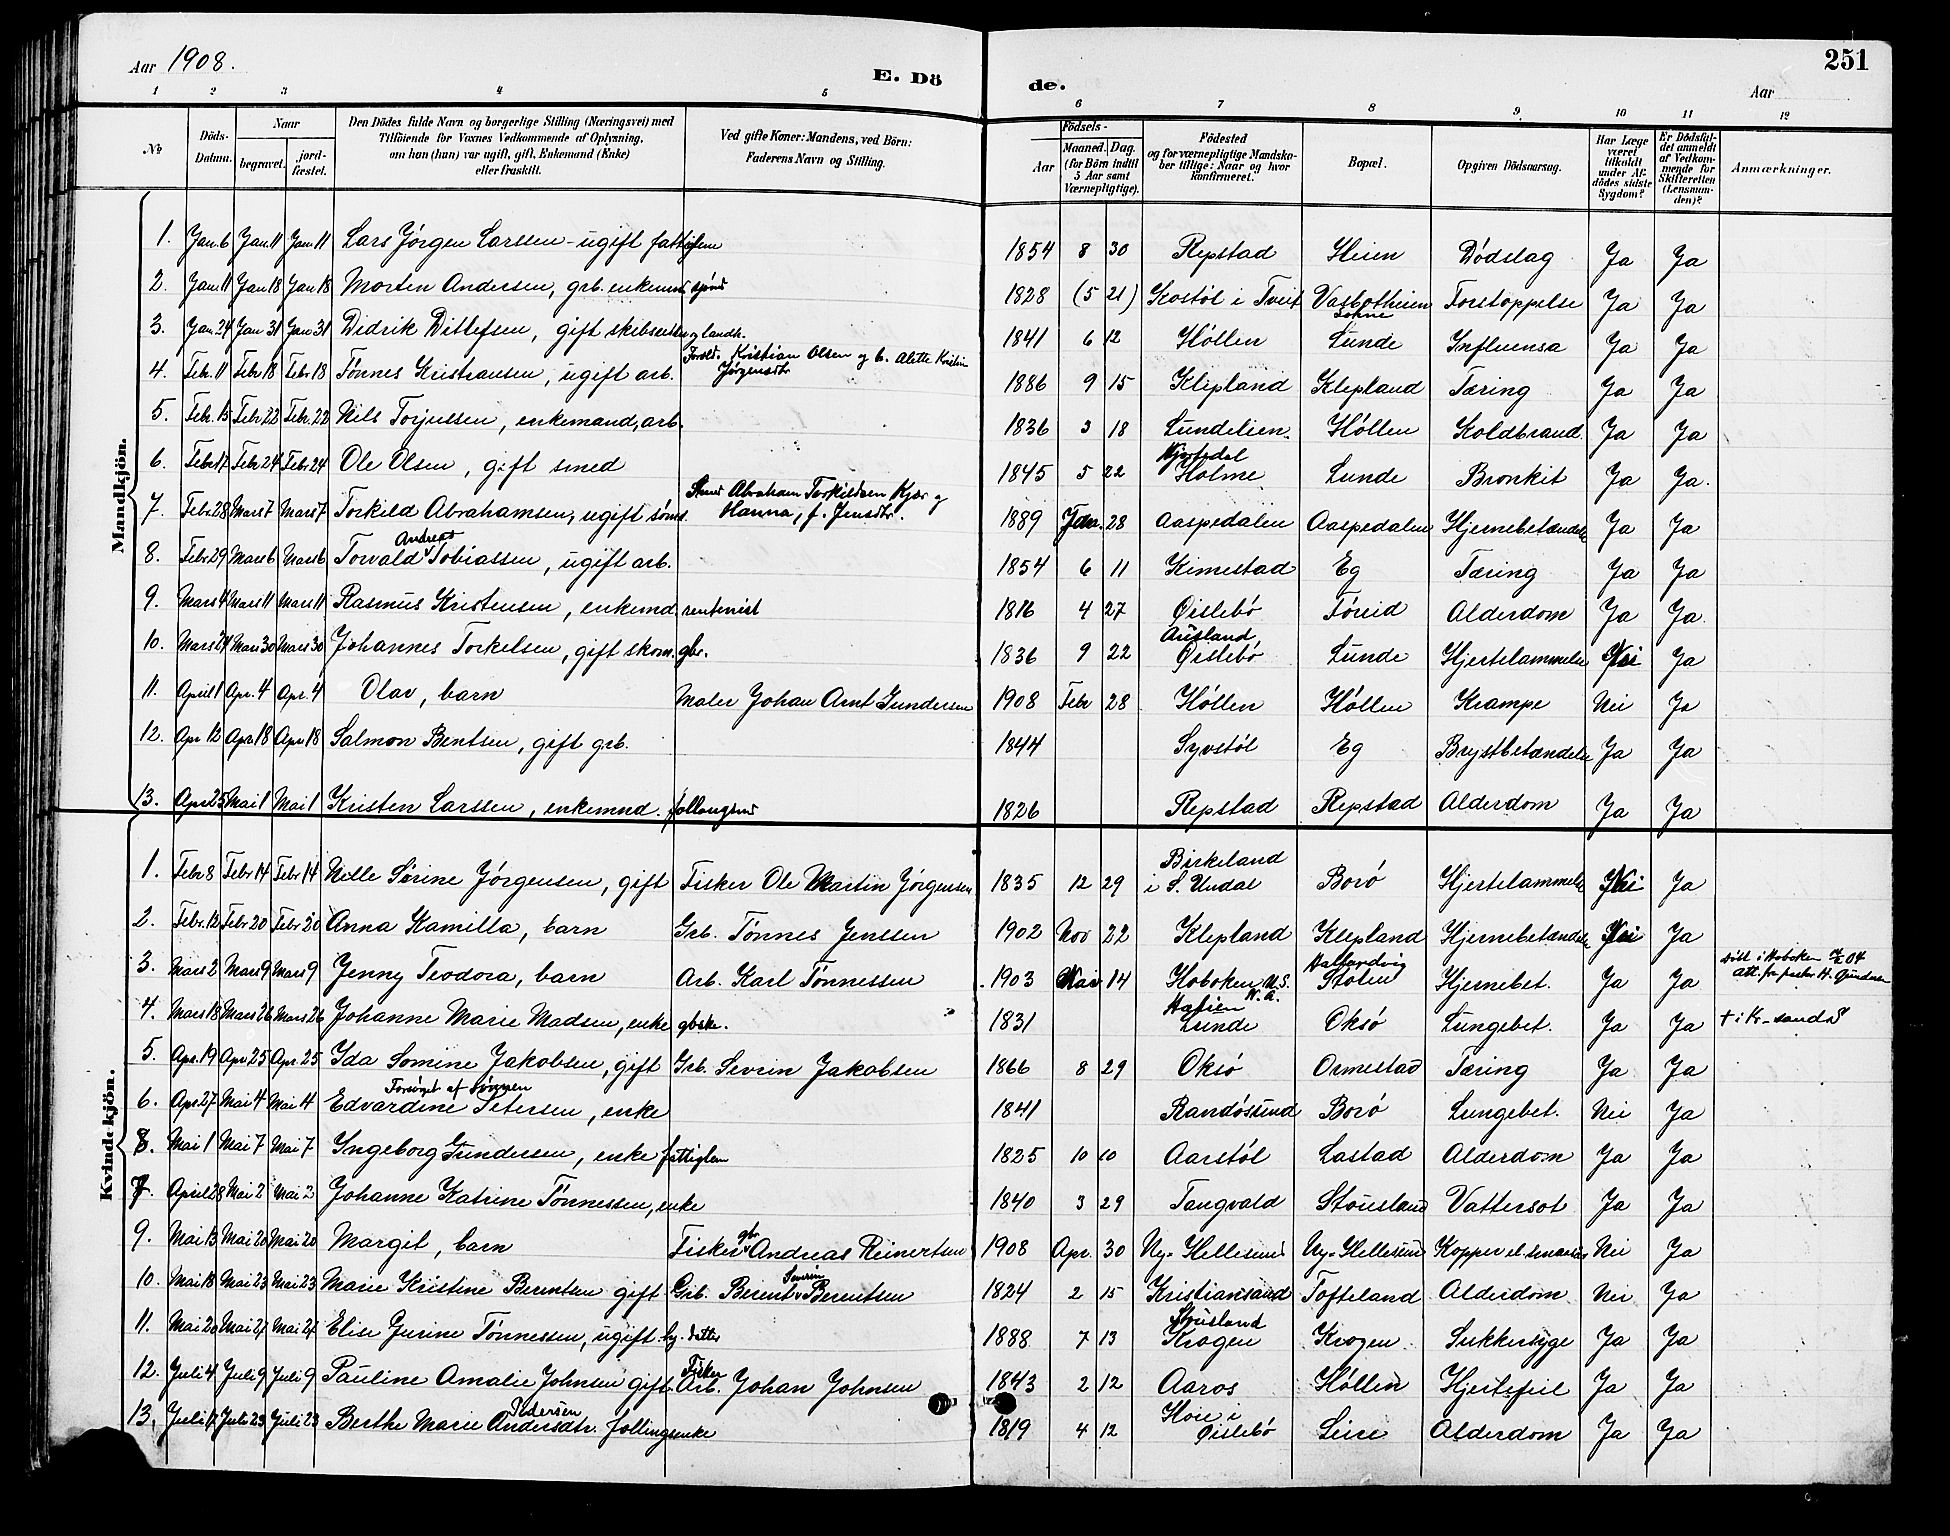 Aar 1908.
E. Dö
de.
251
Aar
1 2 3 4 5 6 7 8 9 10 11 12
№
Döds-Datum.
Naar
begravet.
jord-fæstet.
Den Dödes fulde Navn og borgerlige Stilling (Næringsvei) med
Tilföiende for Voxnes Vedkommende af Oplysning,
om han (hun) var ugift, gift, Enkemand (Enke)
eller fraskilt.
Ved gifte Koner: Mandens, ved Börn:
Faderens Navn og Stilling.
Födsels-
Aar
Maaned. Dag.
(for Börn indtil
5 Aar samt
Værnepligtige).
Födested
og for værnepligtige Mandska-
ber tillige: Naar og hvor
konfirmeret.
Bopæl.
Opgiven Dödsaarsag.
Har Læge
været
tilkaldt
under Af-
dödes sidste
Sygdom?
Er Dödsfal-
det anmeldt
af Vedkom-
mende for
Skifteretten
(Lensman-
den)?
Anmærkninger.
Mandkjön.
1. Jan. 6 Jan. 11 Jan. 11 Lars Jørgen Larssen - ugift fattiglem 1854 8 30 Repstad Heien Dødslag Ja Ja
2. Jan 11 Jan 18 Jan 18 Morten Andersen, grb. enkemnd 1828 (5 21) Kostøl i Tveit Vasbotheien Forstoppelse Ja Ja
Søhne
3. Jan. 24 Jan 31 Jan 31 Didrik Ditlefsen, gift og landh. 1841 6 12 Høllen Lunde Influensa Ja Ja
Kristian Olsen og h. Alette
4. Feb. 11 Febr 18 Febr 18 Tønnes Kristiansen, ugift arb. Jørgensdtr 1886 9 15 Klepland Klepland Tæring Ja Ja
5. Febr. 15 Febr 22 Febr. 22 Nils Torjussen, enkemand, arb. 1836 3 18 Lundelien. Høllen Koldbrand Ja Ja
6. Febr 17 Febr 24 Febr 24 Ole Olsen, gift smed 1845 5 22 Holme Lunde Bronkit Ja Ja.
Abraham Torkildsen Kjær og
7. Febr. 28 Mars 7 Mars 7 Torkild Abrahamsen, ugift sømd. Hanna, f. Jensdtr. 1889 Jan. 28 Aaspedalen Aaspedalen Hjernebetændelse Ja Ja
Andreas
8. Febr. 29 Mars 6 Mars 6 Torvald Tobiassen, ugift arb. 1854 6 11 Kimestad Eg Tæring Ja Ja
9. Mars 4 Mars 11 Mars 11 Rasmus Kristensen, enkemd. rentenist 1816 4 27 ØislebøFøreid Alderdom Ja Ja.
Ausland,
10. Mars 24 Mars 30 Mars 30 Johannes Torkelsen, gift skom. gbr. 1836 9 22 Øislebø Lunde Hjertelammelse Nei Ja
11. April 1 Apr. 4 Apr. 4 Olav, barn Maler Johan Arnt Gundersen 1908 Febr 28 Høllen Høllen Krampe Nei Ja
12. Apr 12 Apr 18 Apr 18 Salmon Bentsen, gift grb. 1844 Syvstøl Eg Brystbetændelse Ja Ja
13. Apr 25 Mai 1 Mai 1 Kristen Larssen, enkemnd. 1826 Repstad Repstad Alderdom Ja Ja
Kvindekjön.
Birkeland
1. Febr 8 Febr 14 Febr 14 Nille Serine Jørgensen, gift Fisker Ole Martin Jørgensen 1835 12 29 i S. Undal Borø Hjertelammelse Nei Ja
2. Febr. 12 Febr 20 Febr 20 Anna Kamilla, barn Grb. Tønnes Jenssen 1902 Nov 22 Klepland Klepland Hjernebetændelse Nei Ja
3. Mars 2 Mars 9 Mars 9 Jenny Teodora, barn Arb. Karl Tønnessen 1903 Mai 14 Hoboken, U.S. N.A. Halsandvig Stolen Hjernebet. Ja Ja døbt i Hoboken 04
Att. fra pastor H. Gundersen
4. Mars 18 Mars 26 Mars 26 Johanne Marie Madsen, enke gbske. 1831 Lunde Oksø Lungebet. Ja Ja † i Kr-sand S
5. Apr. 19 Apr 25 Apr. 25 Ida Somine Jakobsen, gift Grb. Sevrin Jakobsen 1866 8 29 Oksø Ormestad Tæring Ja Ja
Forsørget af sønnen
6. Apr 27 Mai 4 Mai 4 Edvardine Petersen, enke 1841 Randøsund Borø Lungebet. Nei Ja
8. Mai 1 Mai 7 Mai 7 Ingeborg Gundersen, enke fattiglem 1825 10 10 Aarstøl Lastad Alderdom Ja Ja
7. April 28 Mai 2 Mai 2 Johanne Katrine Tønnessen, enke 1840 3 29 Tangvald Stousland Vattersot Ja Ja
9. Mai 13 Mai 20 Mai 20 Margit, barn Fisker gbr. Andreas Reinertsen 1908 Apr. 30 Ny-Hellesund Ny-Hellesund Nei Ja
Severin
10. Mai 18 Mai 23 Mai 23 Marie Kristine Berentsen gift Grb. Berent Berentsen 1824 2 15 Kristiansand Tofteland Alderdom. Nei Ja
Stousland
11. Mai 20 Mai 27 Mai 27 Elise Gurine Tønnessen, ugift. datter 1888 7 13 Krogen Krogen Sukkersyge Ja Ja
Fisker
12. Juli 4 Juli 9 Juli 9 Pauline Amalie Johnsen gift. Arb. Johan Johnsen 1843 2 12 Aaros Høllen Hjertefeil Ja Ja
Pedersen
13. Juli 17 Juli 23 Juli 23 Berthe Marie Andersdtr. follingsenke 1819 4 12 Høie i Øislebø Leire Alderdom Ja Ja